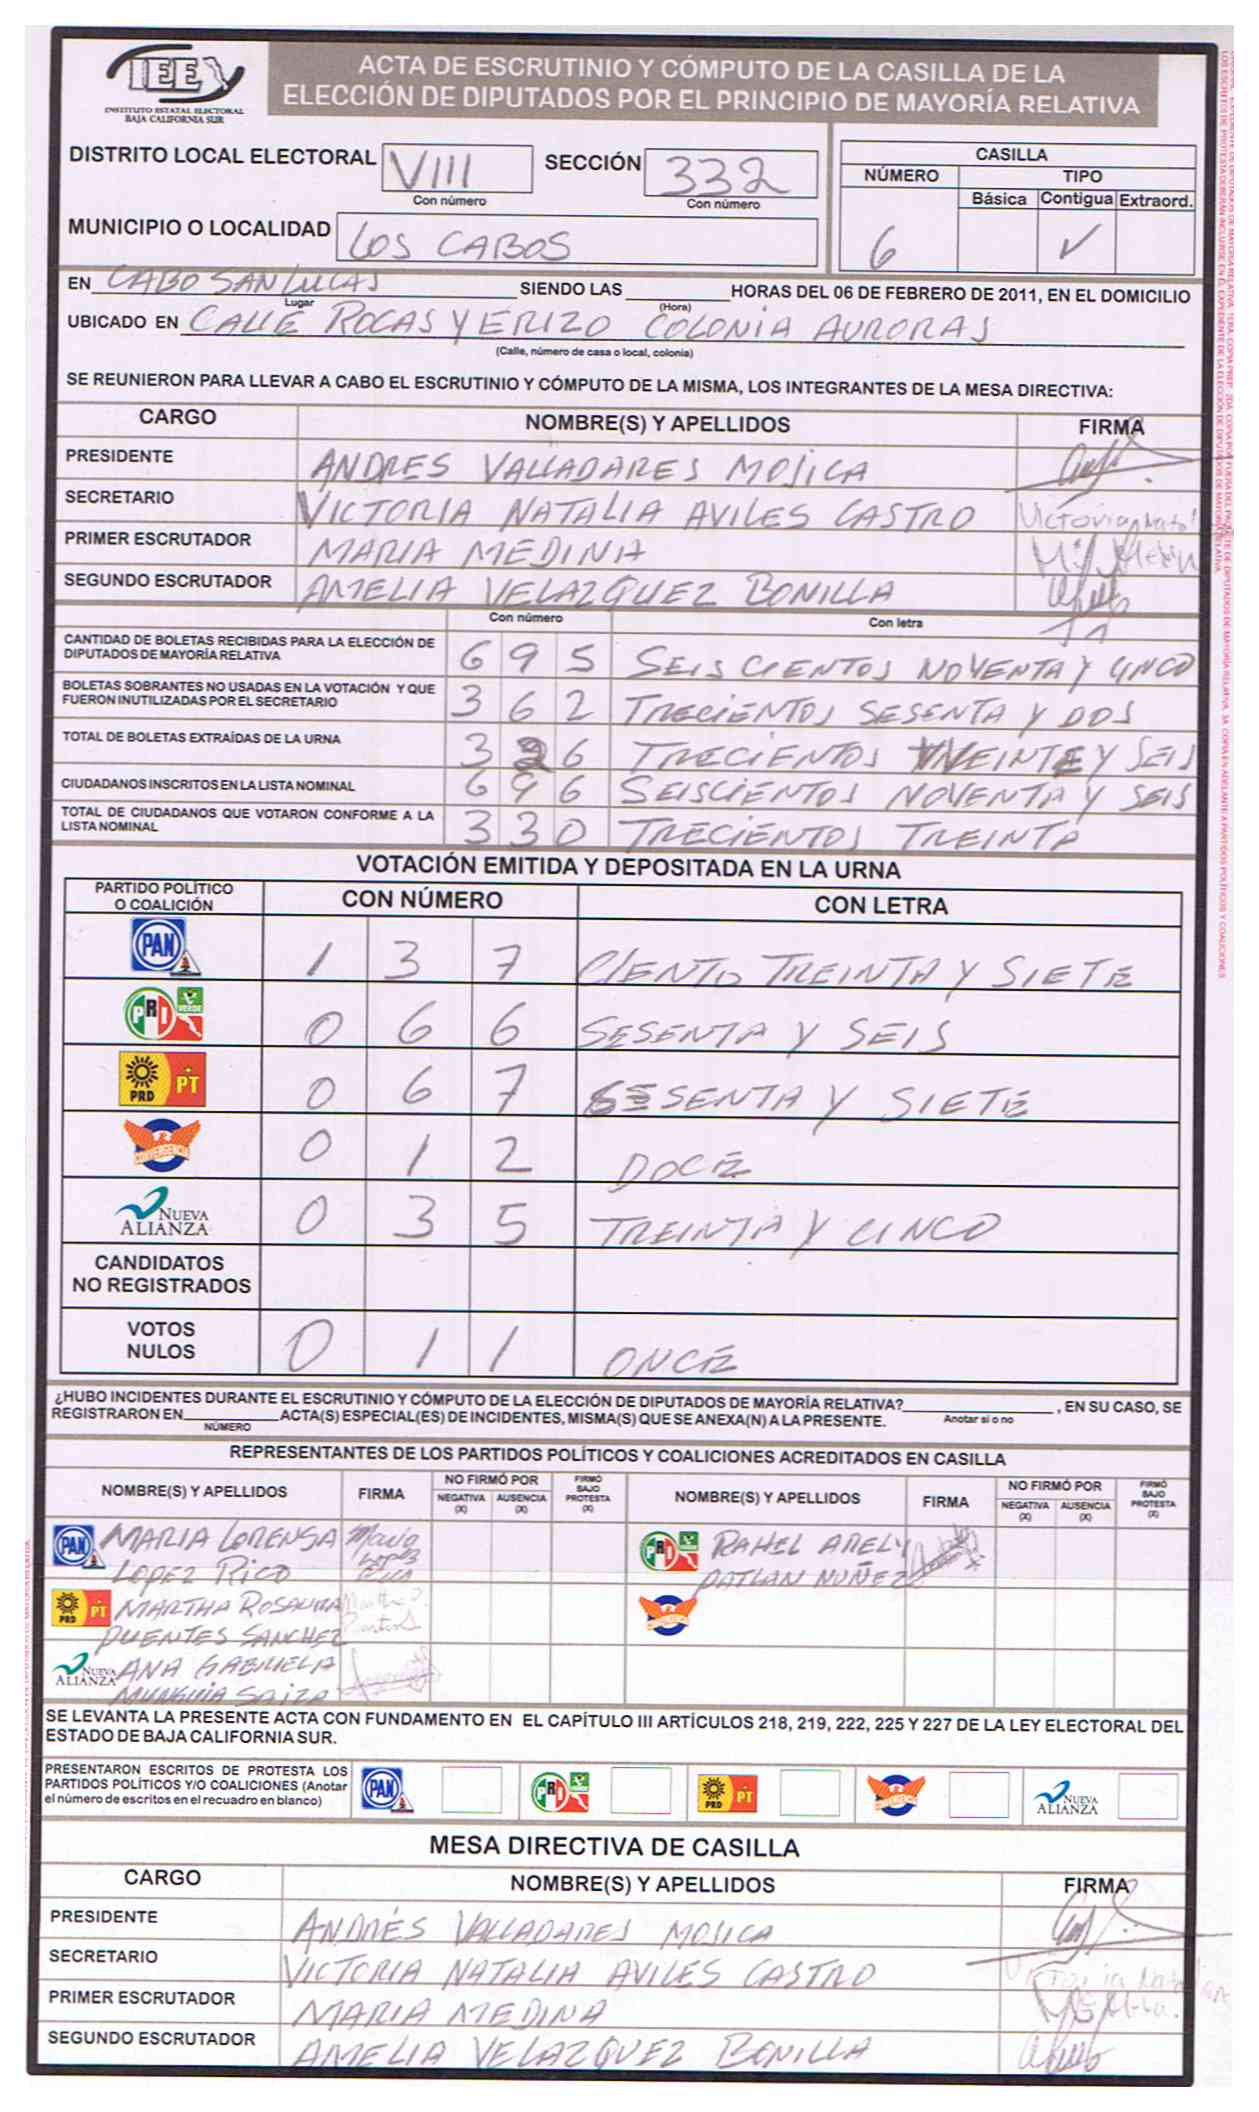 IEE
INSTITUTO ESTATAL ELECTORAL
BAJA CALIFORNIA SUR
ACTA DE ESCRUTINIO Y CÓMPUTO DE LA CASILLA DE LA
ELECCIÓN DE DIPUTADOS POR EL PRINCIPIO DE MAYORÍA RELATIVA
DISTRITO LOCAL ELECTORAL VIII SECCIÓN 332
Con número Con número
MUNICIPIO O LOCALIDAD LOS CABOS
CASILLA
NÚMERO TIPO
Básica Contigua Extraord.
6 ✓
EN CABO SAN LUCAS SIENDO LAS HORAS DEL 06 DE FEBRERO DE 2011, EN EL DOMICILIO
Lugar (Hora)
UBICADO EN CALLE ROCAS Y ERIZO COLONIA AURORAS
(Calle, número de casa o local, colonia)
SE REUNIERON PARA LLEVAR A CABO EL ESCRUTINIO Y CÓMPUTO DE LA MISMA, LOS INTEGRANTES DE LA MESA DIRECTIVA:
CARGO NOMBRE(S) Y APELLIDOS FIRMA
PRESIDENTE ANDRES VALLADARES MOJICA
SECRETARIO VICTORIA NATALIA AVILES CASTRO
PRIMER ESCRUTADOR MARIA MEDINA
SEGUNDO ESCRUTADOR AMELIA VELAZQUEZ BONILLA
Con número Con letra
CANTIDAD DE BOLETAS RECIBIDAS PARA LA ELECCIÓN DE
DIPUTADOS DE MAYORÍA RELATIVA 695 SEIS CIENTOS NOVENTA Y CINCO
BOLETAS SOBRANTES NO USADAS EN LA VOTACIÓN Y QUE
FUERON INUTILIZADAS POR EL SECRETARIO 362 TRECIENTOS SESENTA Y DOS
TOTAL DE BOLETAS EXTRAÍDAS DE LA URNA 326 TRECIENTOS VEINTE Y SEIS
CIUDADANOS INSCRITOS EN LA LISTA NOMINAL 696 SEISCIENTOS NOVENTA Y SEIS
TOTAL DE CIUDADANOS QUE VOTARON CONFORME A LA
LISTA NOMINAL 330 TRECIENTOS TREINTA
VOTACIÓN EMITIDA Y DEPOSITADA EN LA URNA
PARTIDO POLÍTICO
O COALICIÓN CON NÚMERO CON LETRA
PAN 1 3 7 CIENTO TREINTA Y SIETE
PRI VERDE 0 6 6 SESENTA Y SEIS
PRD PT 0 6 7 SESENTA Y SIETE
CONVERGENCIA 0 1 2 DOCE
NUEVA ALIANZA 0 3 5 TREINTA Y CINCO
CANDIDATOS
NO REGISTRADOS
VOTOS
NULOS 0 1 1 ONCE
¿HUBO INCIDENTES DURANTE EL ESCRUTINIO Y CÓMPUTO DE LA ELECCIÓN DE DIPUTADOS DE MAYORÍA RELATIVA? , EN SU CASO, SE
REGISTRARON EN ACTA(S) ESPECIAL(ES) DE INCIDENTES, MISMA(S) QUE SE ANEXA(N) A LA PRESENTE. Anotar si o no
NÚMERO
REPRESENTANTES DE LOS PARTIDOS POLÍTICOS Y COALICIONES ACREDITADOS EN CASILLA
NOMBRE(S) Y APELLIDOS FIRMA NO FIRMÓ POR NEGATIVA (X) AUSENCIA (X) FIRMÓ BAJO PROTESTA (X) NOMBRE(S) Y APELLIDOS FIRMA NO FIRMÓ POR NEGATIVA (X) AUSENCIA (X) FIRMÓ BAJO PROTESTA (X)
PAN MARIA LORENSA Maria PRI VERDE RAHEL ARELY
LOPEZ RICO Lopez Rico PATLAN NUÑEZ
PRD PT MARTHA ROSAURA CONVERGENCIA
PUENTES SANCHEZ
NUEVA ALIANZA ANA GABRIELA
MUNGUIA
SE LEVANTA LA PRESENTE ACTA CON FUNDAMENTO EN EL CAPÍTULO III ARTÍCULOS 218, 219, 222, 225 Y 227 DE LA LEY ELECTORAL DEL
ESTADO DE BAJA CALIFORNIA SUR.
PRESENTARON ESCRITOS DE PROTESTA LOS
PARTIDOS POLÍTICOS Y/O COALICIONES (Anotar
el número de escritos en el recuadro en blanco)
PAN PRI VERDE PRD PT CONVERGENCIA NUEVA ALIANZA
MESA DIRECTIVA DE CASILLA
CARGO NOMBRE(S) Y APELLIDOS FIRMA
PRESIDENTE ANDRÉS VALLADARES MOJICA
SECRETARIO VICTORIA NATALIA AVILES CASTRO
PRIMER ESCRUTADOR MARIA MEDINA
SEGUNDO ESCRUTADOR AMELIA VELAZQUEZ BONILLA